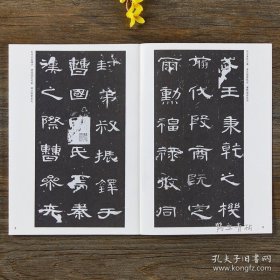 武王秉乾之機
翦伐殷商既定
爾勳福祿攸同
封弟叔振鐸于
曹國氏焉秦
漢之際曹參夾
孔夫子旧书网